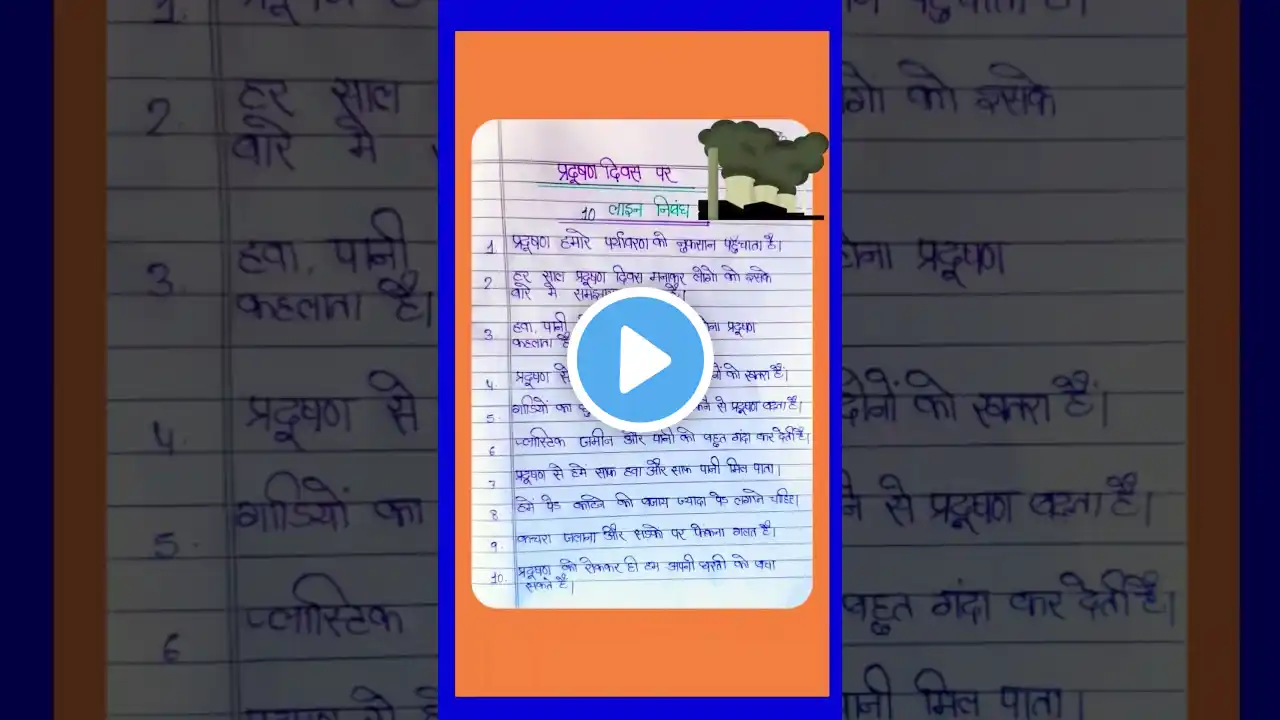 प्रदूषण दिवस पर
10 लाइन निबंध
1 प्रदूषण हमारे पर्यावरण को नुकसान पहुँचाता है।
2 हर साल प्रदूषण दिवस मनाकर लोगो को इसके
बारे मे
3 हवा, पानी प्रदूषण
कहलाता है
4. प्रदूषण से को खतरा है।
5. गाडियों का से प्रदूषण बढता है।
6 प्लास्टिक जमीन और पानी को बहुत गंदा कर देती है।
7 प्रदूषण से हमे साफ हवा और साफ पानी मिल पाता।
8 हमें पेड काटने की बजाय ज्यादा पेड लगाने चाहिए।
9. कचरा जलाना और सडको पर फेकना गलत है।
10. प्रदूषण को रोककर ही हम अपनी धरती को बचा
सकते है।